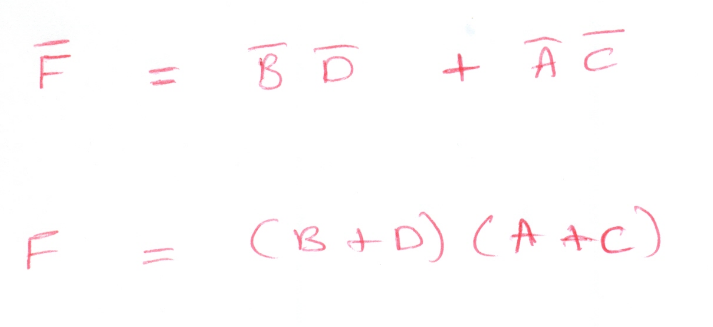 F̅ = B̅ D̅ + A̅ C̅
F = (B+D) (A+C)